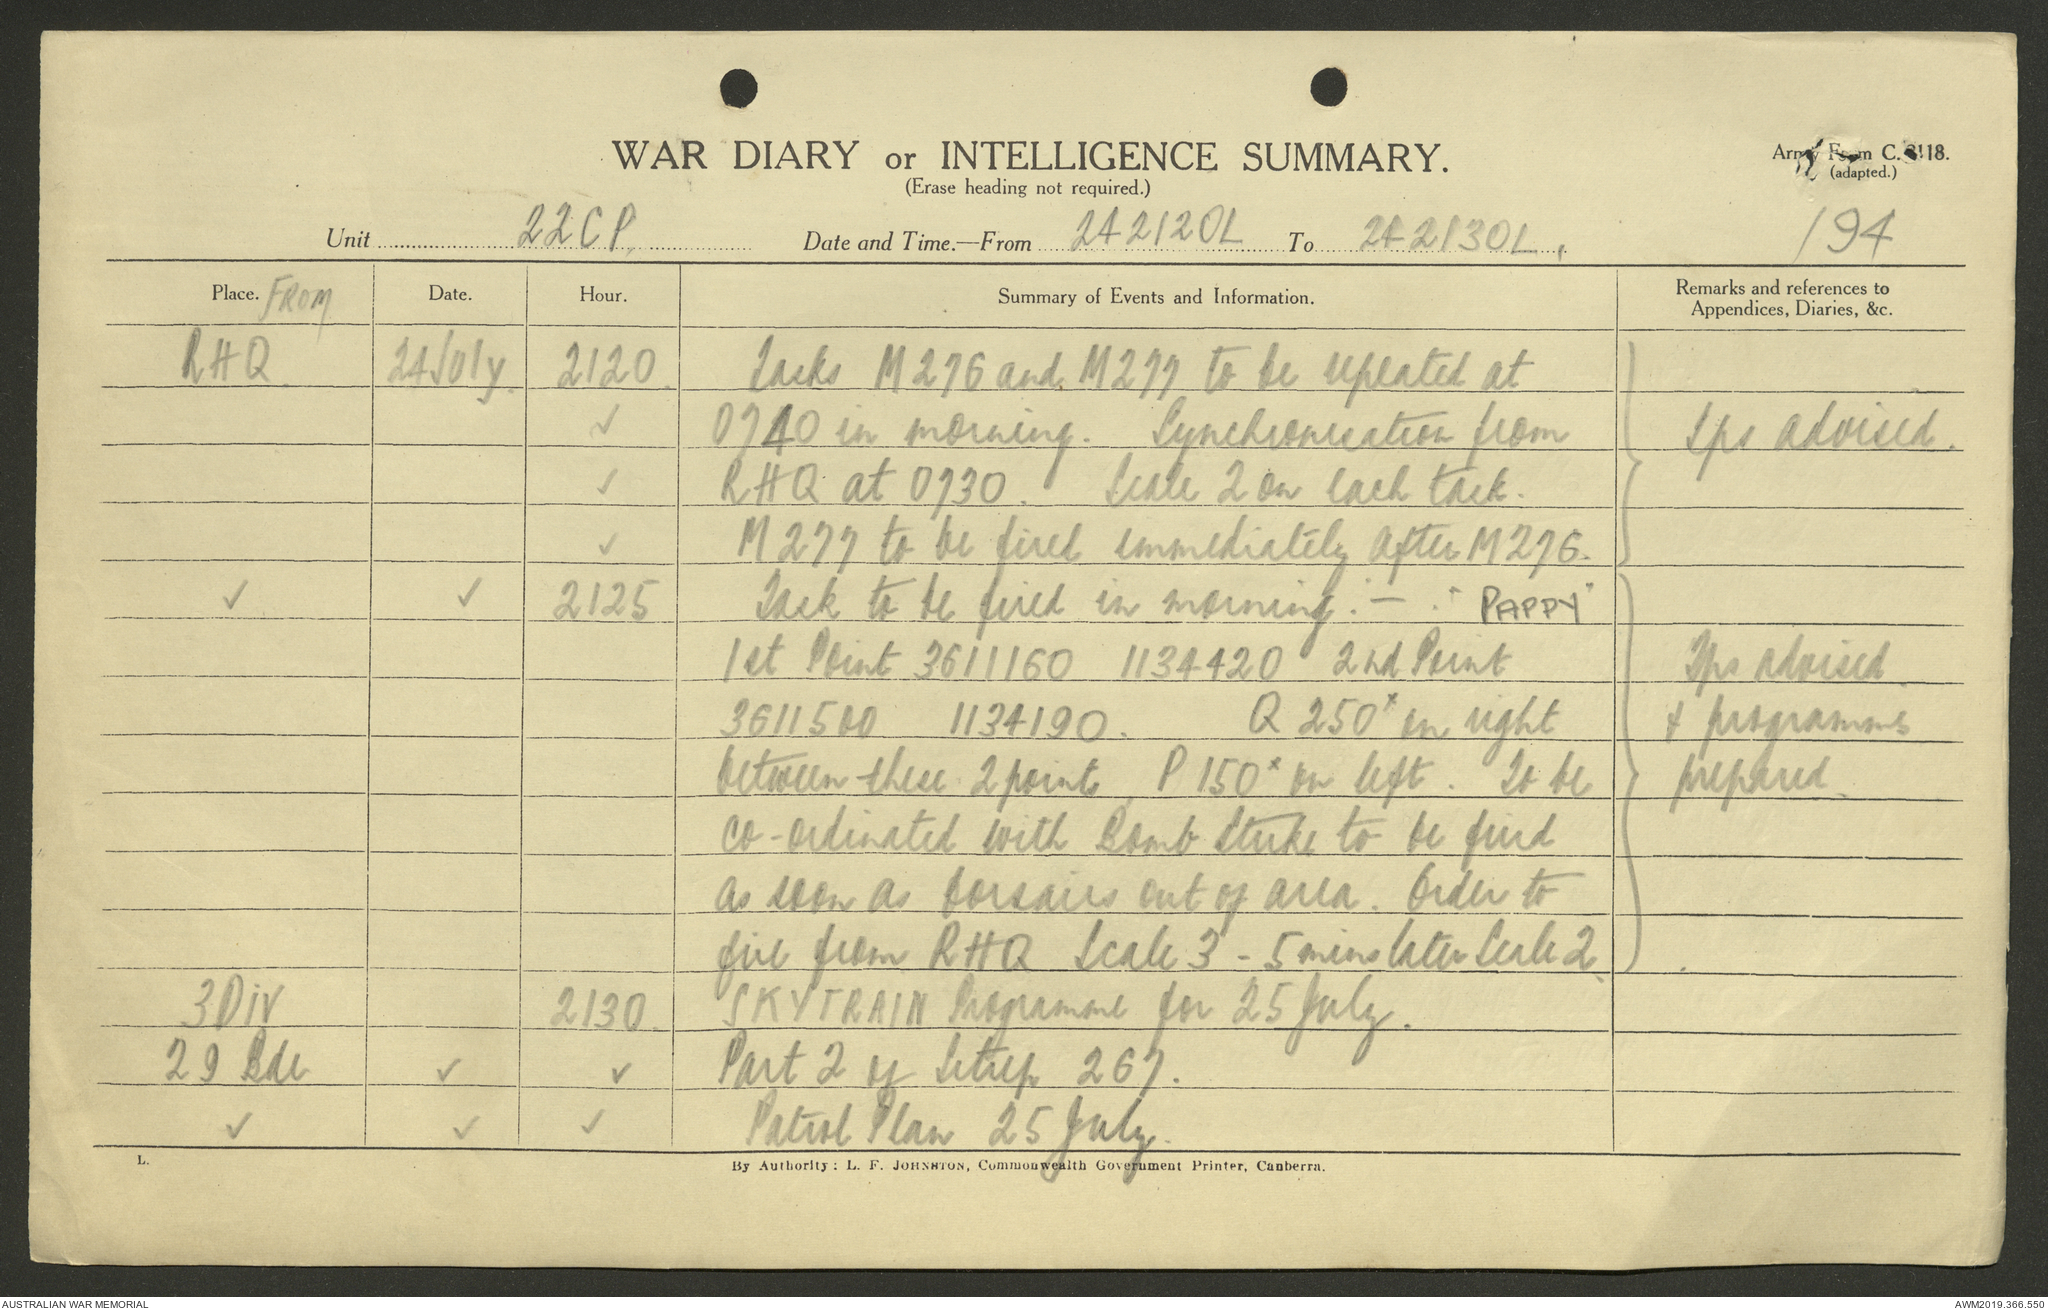 WAR DIARY or INTELLIGENCE SUMMARY.
(Erase heading not required.)
Army Form C. 2118.
(adapted.)
194
Unit 22 CP. Date and Time.—From 242120L To 242130L.
Place. FROM Date. Hour. Summary of Events and Information. Remarks and references to Appendices, Diaries, &c.
RHQ. 24 July. 2120. Tasks M276 and M277 to be repeated at
✓ 0740 in morning. Synchronisation from Tps advised.
✓ RHQ at 0730. Scale 2 on each task.
✓ M277 to be fired immediately after M276.
✓ ✓ 2125 Task to be fired in morning:- "PAPPY"
1st Point 3611160 1134420 2nd Point Tps advised
3611500 1134190. Q 250ˣ on right & programmes
between these 2 points, P 150ˣ on left. To be prepared
co-ordinated with Bomb Strike to be fired
as soon as Corsairs out of area. Order to
fire from RHQ Scale 3 - 5 mins later Scale 2.
3 Div 2130. SKYTRAIN Programme for 25 July.
29 Bde ✓ ✓ Part 2 of Sitrep 267.
✓ ✓ ✓ Patrol Plan 25 July.
L. By Authority: L. F. JOHNSTON, Commonwealth Government Printer, Canberra.
AUSTRALIAN WAR MEMORIAL AWM2019.366.550